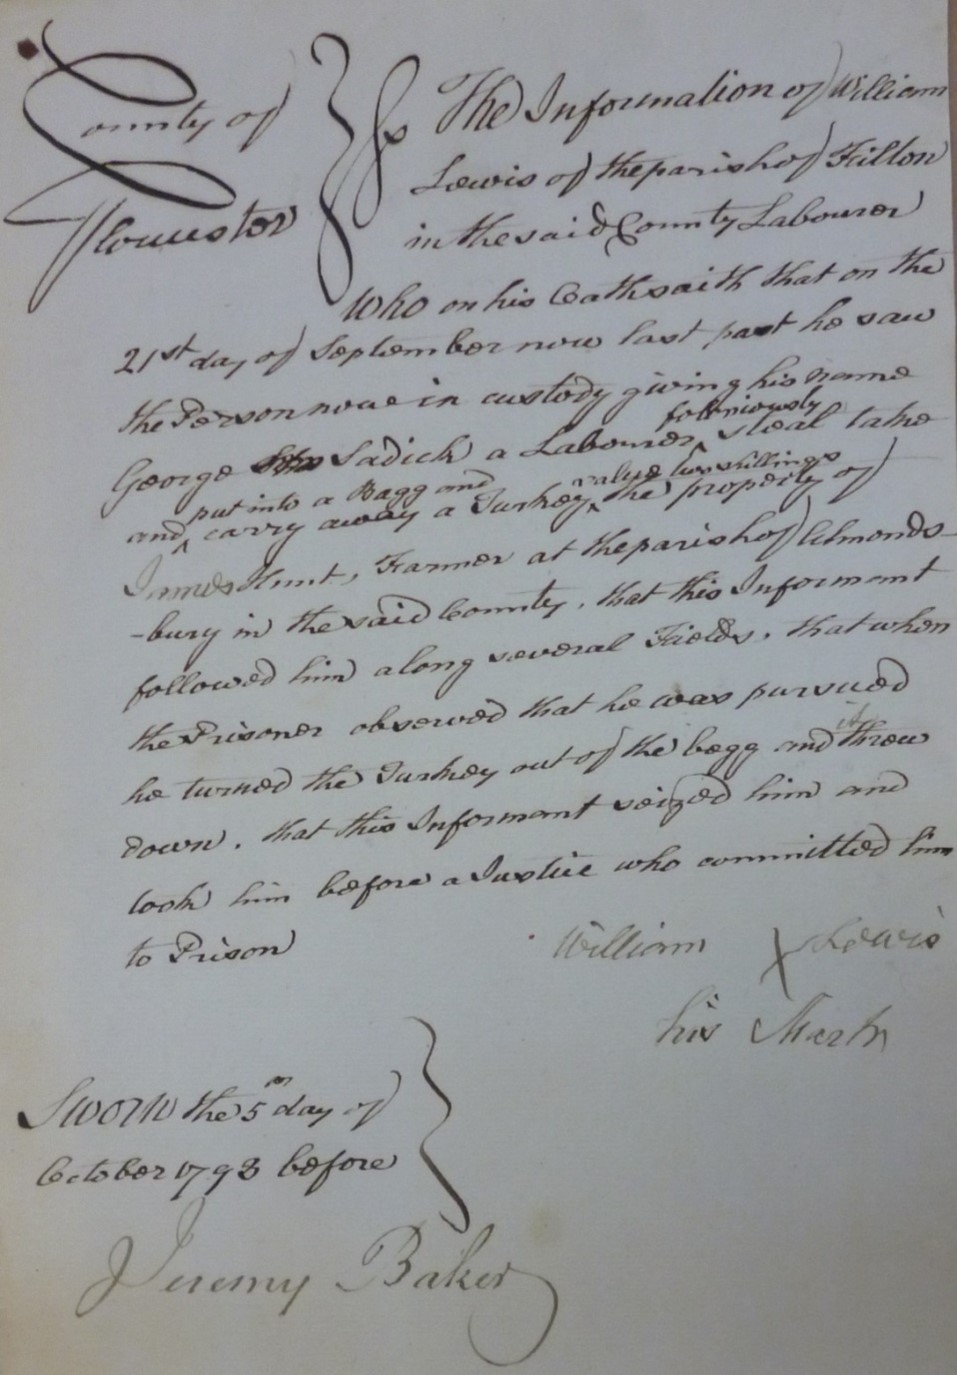 County of
Gloucester
The Information of William
Lewis of the parish of Filton
in the said County Labourer
Who on his Oath saith that on the
21st day of September now last past he saw
the Person now in custody giving his name
feloniously
George Sadick a Labourer steal take
put into a Bagg and value two shillings
and carry away a Turkey, the property of
James Hunt, Farmer at the parish of Almonds-
-bury in the said County, that this Informant
followed him along several Fields, that when
the Prisoner observed that he was pursued
it
he turned the Turkey out of the bagg and threw
down, that this Informant seized him and
took him before a Justice who committed him
to Prison
William X Lewis
his Mark
Sworn the 5th day of
October 1793 before
Jeremy Baker